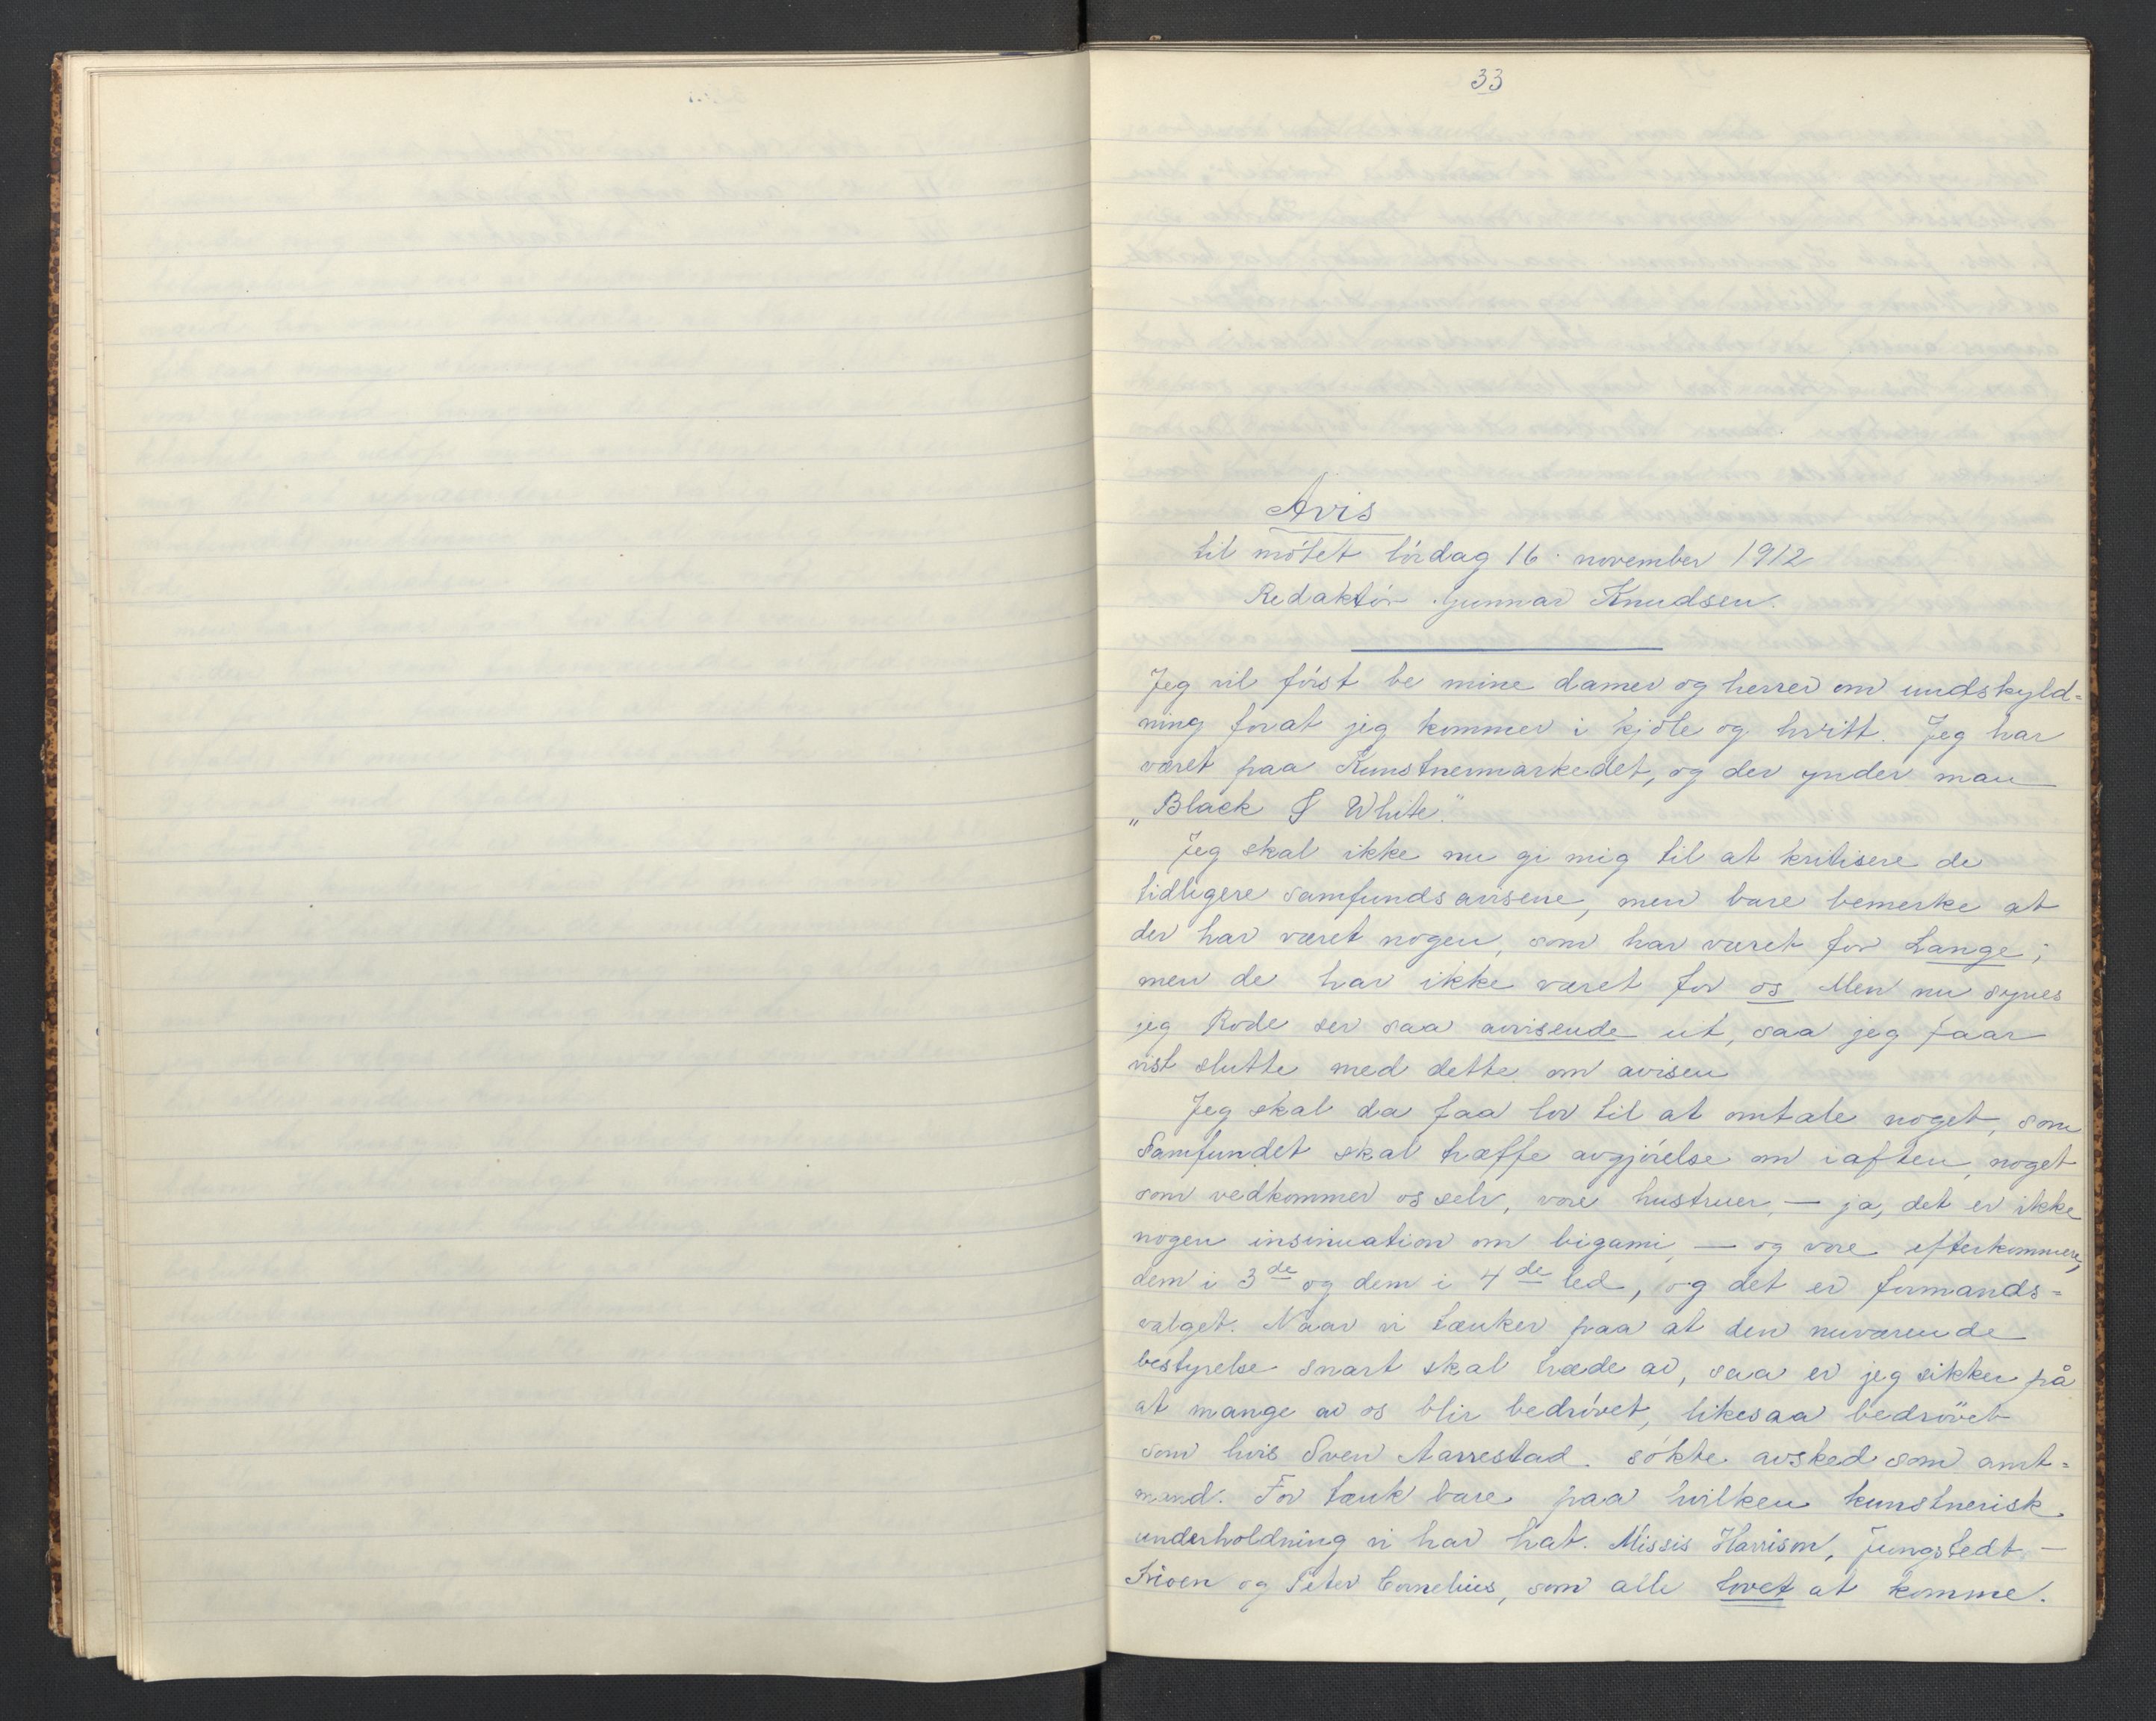 33
Avis
til mötet lördag 16. november 1912
Redaktör Gunnar Knudsen.
Jeg vil först be mine damer og herrer om undskyld=
ning forat jeg kommer i kjole og hvitt. Jeg har
været paa Kunstnermarkedet, og der ynder man
„Black & White".
Jeg skal ikke nu gi mig til at kritisere de
tidligere samfundsavisene, men bare bemerke at
der har været nogen, som har været for Lange;
men de har ikke været for os. Men nu synes
jeg Rode ser saa avvisende ut, saa jeg faar
vist slutte med dette om avisen
Jeg skal da faa lov til at omtale noget, som
Samfundet skal træffe avgjörelse om iaften, noget
som vedkommer os selv, vore hustruer, — ja, det er ikke
nogen insinuation om bigami, — og vore efterkommere,
dem i 3de og dem i 4de led, og det er formands=
valget. Naar vi tænker paa at den nuværende
bestyrelse snart skal træde av, saa er jeg sikker på
at mange av os blir bedrövet, likesaa bedrövet
som hvis Sven Aarrestad. sökte avsked som amt=
mand. For tænk bare paa hvilken kunstnerisk
underholdning vi har hat. Missis Harrison, Jungstedt —
og Peter Cornelius, som alle lovet at komme.